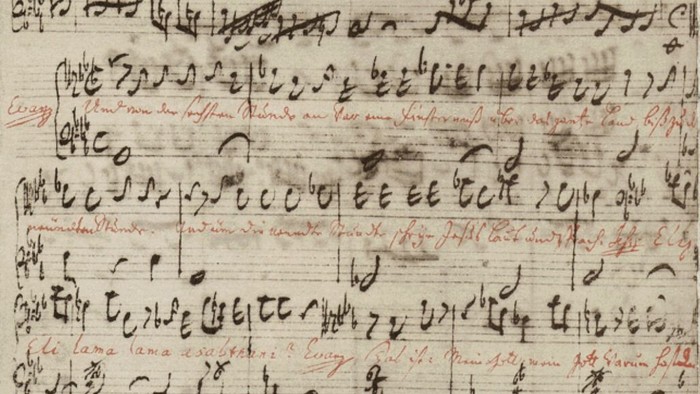 Evang Und von der sechsten Stunde an war eine Finsterniß über das gantze Land biß zu
neundten Stunde. Und um die neundte Stunde schrye Jesus laut und sprach. Eli
Eli lama lama asabthani? Evang Das ist: Mein Gott, mein Gott warum hast du